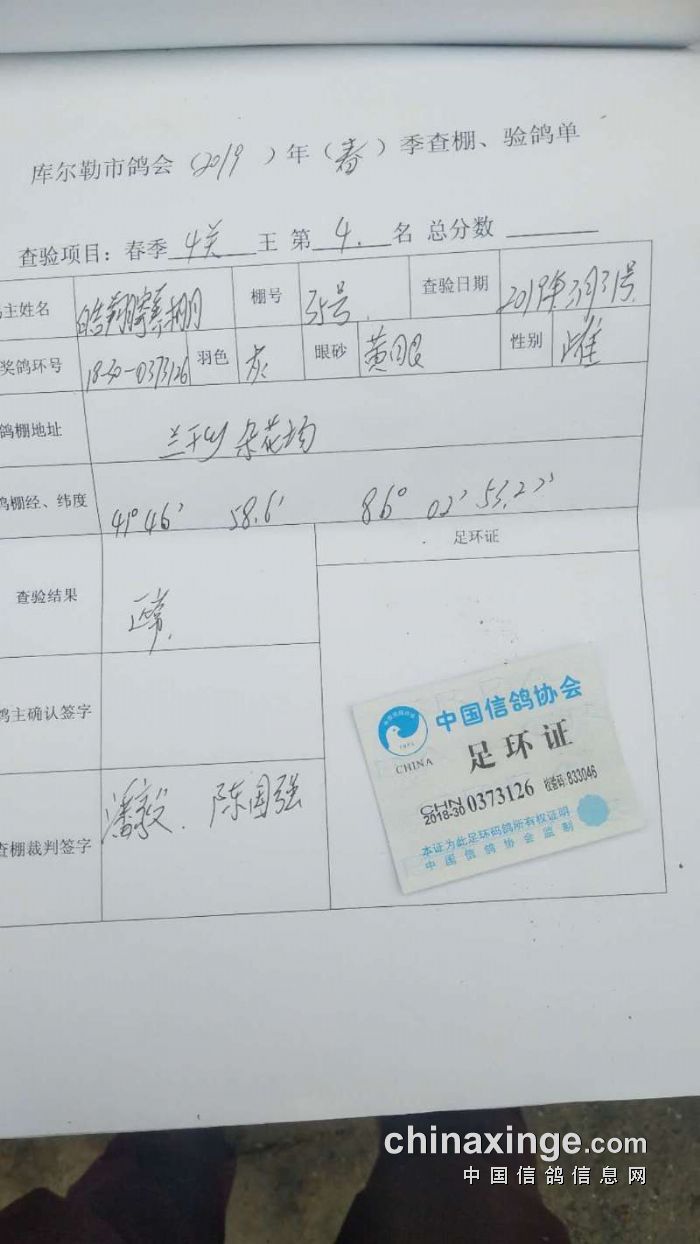 库尔勒市鸽会（2019）年（春）季查棚、验鸽单
查验项目：春季 4关 王 第 4. 名 总分数
主姓名 皓翔赛鸽 棚号 35号. 查验日期 2019年3月31号.
奖鸽环号 18-30-0373126 羽色 灰 眼砂 黄眼 性别 雌
鸽棚地址 兰干乡 杂花场
鸽棚经、纬度 41°46' 58.6' 86° 02' 53.22''
查验结果 正常. 足环证
鸽主确认签字
查棚裁判签字 潘毅. 陈国强
中国信鸽协会
CHINA 足环证
CHN
2018-30 0373126 校验码:833046
本证为此足环码鸽所有权证明
中国信鸽协会监制
chinaxinge.com
中国信鸽信息网